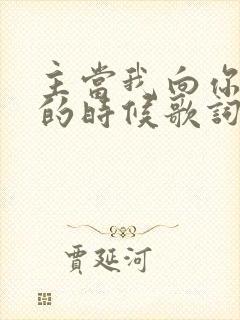 主當我向你
的時候歌詞
賈延河